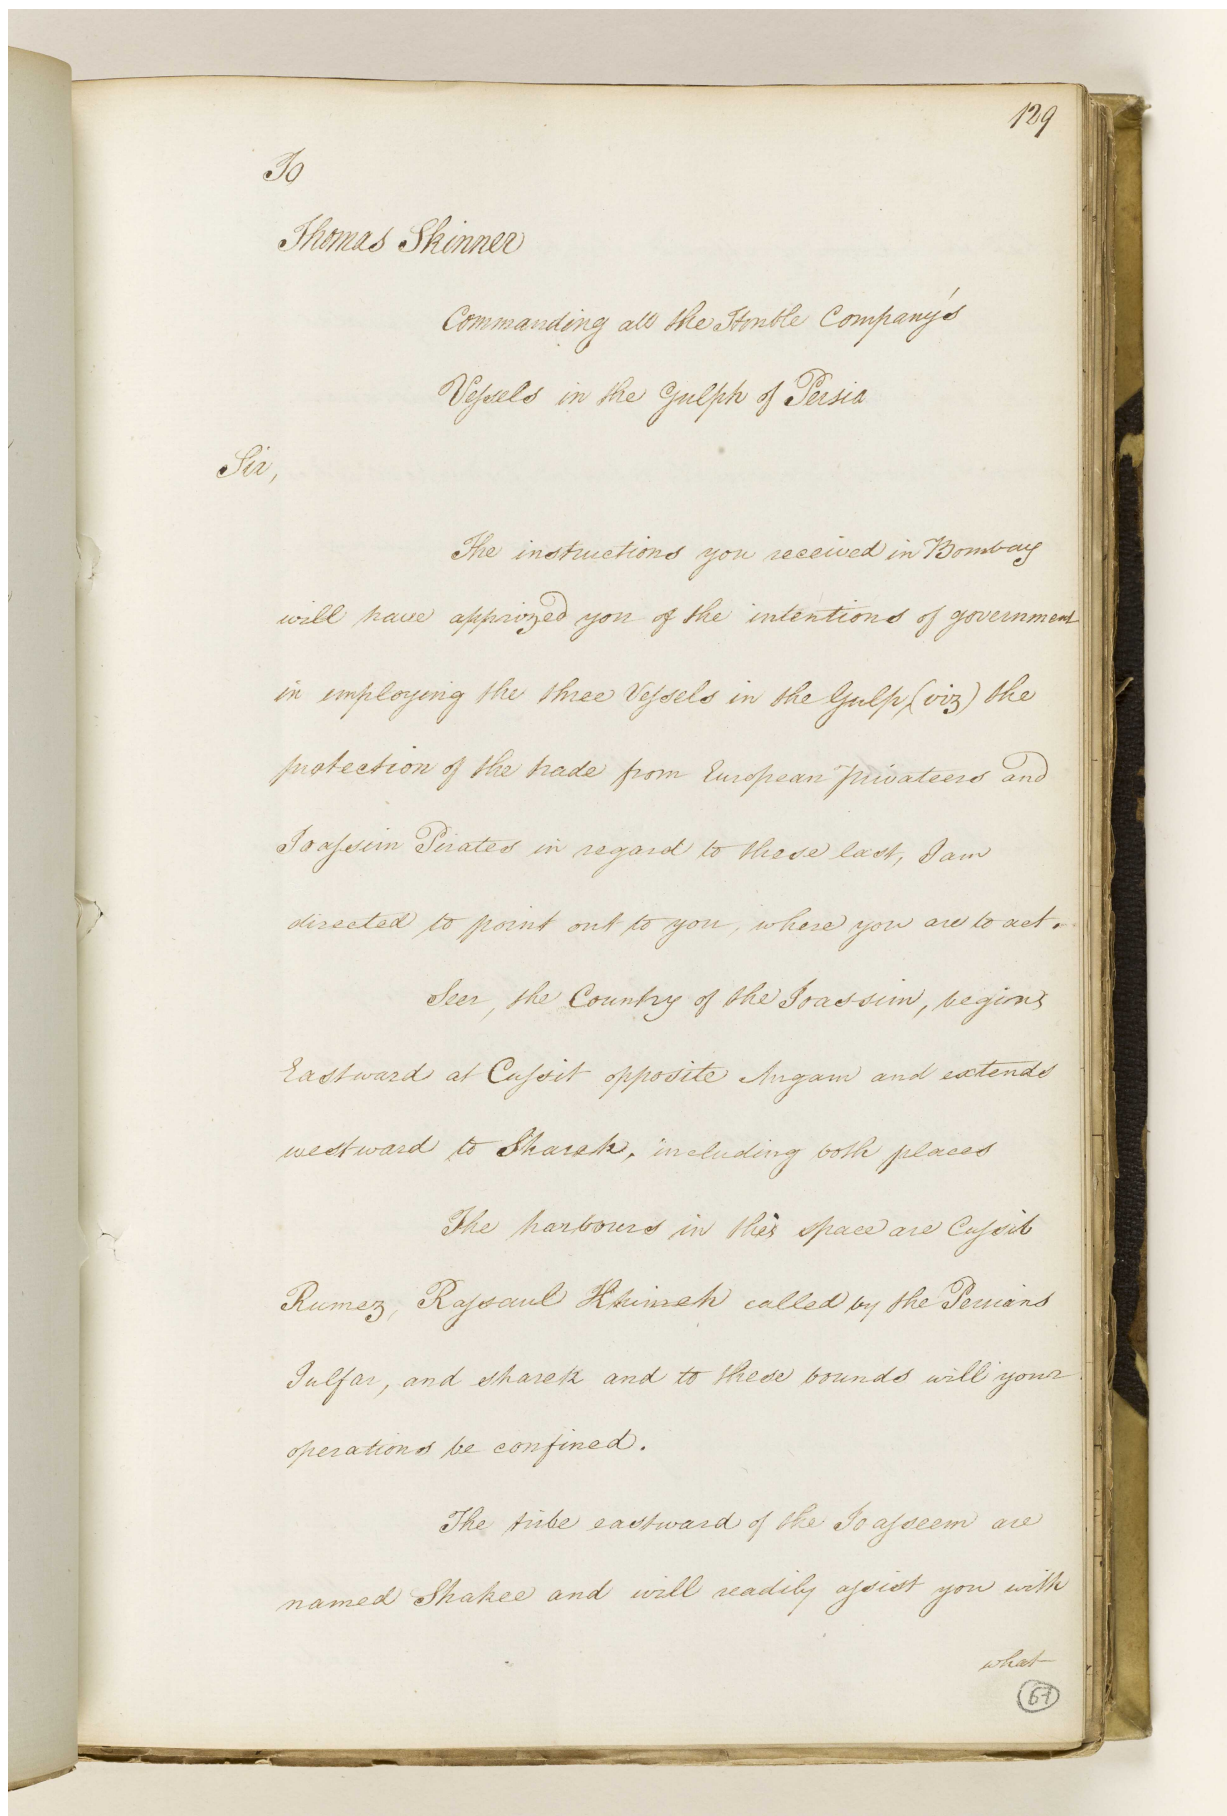 129
To
Thomas Skinner
Commanding all the Honble Company's
Vessels in the Gulph of Persia
Sir,
The instructions you received in Bombay
will have apprized you of the intentions of government
in employing the three Vessels in the Gulp, (viz) the
protection of the trade from European privateers and
Joassim Pirates in regard to these last, I am
directed to point out to you, where you are to act.
Seer, the Country of the Joassim, begins
Eastward at Cussit opposite Angam and extends
westward to Sharek, including both places
The harbours in this space are Cussit
Rumez, Rassaul Khimeh called by the Persians
Julfar, and sharek and to these bounds will your
operations be confined.
The tribe eastward of the Joasseem are
named Shahee and will readily assist you with
what
67